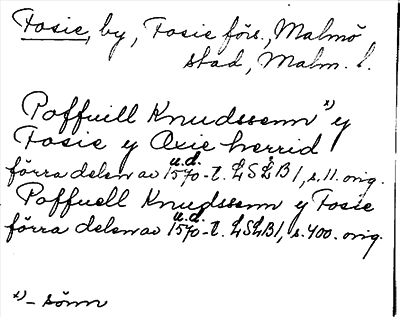 Fosie, by, Fosie förs., Malmö
stad, Malm. l.
Poffuell Knudssenn x) y
Fosie y Oxie herrid
förra delen av u.d. 1570-t. LSLB1, s. 11. orig.
Poffuell Knudssenn y Fosie
förra delen av u.d. 1570-t. LSLB1, s. 400. orig.
x) - sönn